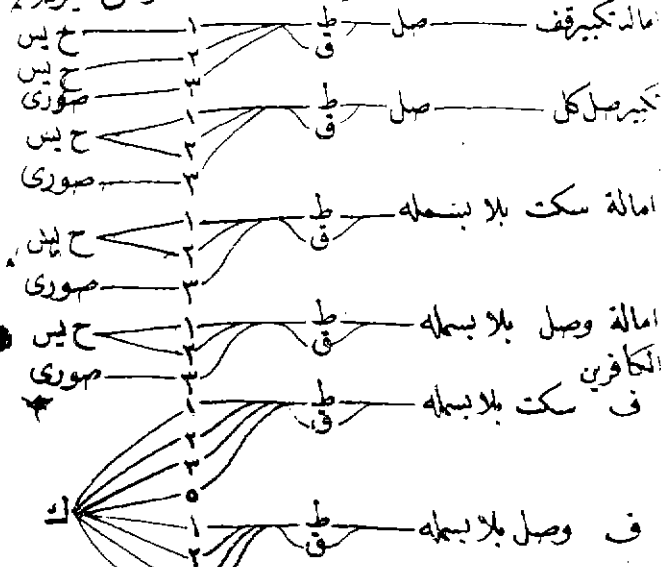 امالة تكبيرقف صل ط ق ١ ٢ ٣ ح يس ح يس صورى
تكبيرصل كل صل ط ق ١ ٢ ٣ ح يس صورى
امالة سكت بلا بسمله ط ق ١ ٢ ٣ ح يس صورى
امالة وصل بلا بسمله ط ق ١ ٣ ٣ ح يس صورى
الكافرين
ف سكت بلا بسمله ط ق ١ ٢ ٣ ٥ ك
ف وصل بلا بسمله ط ق ١ ٢